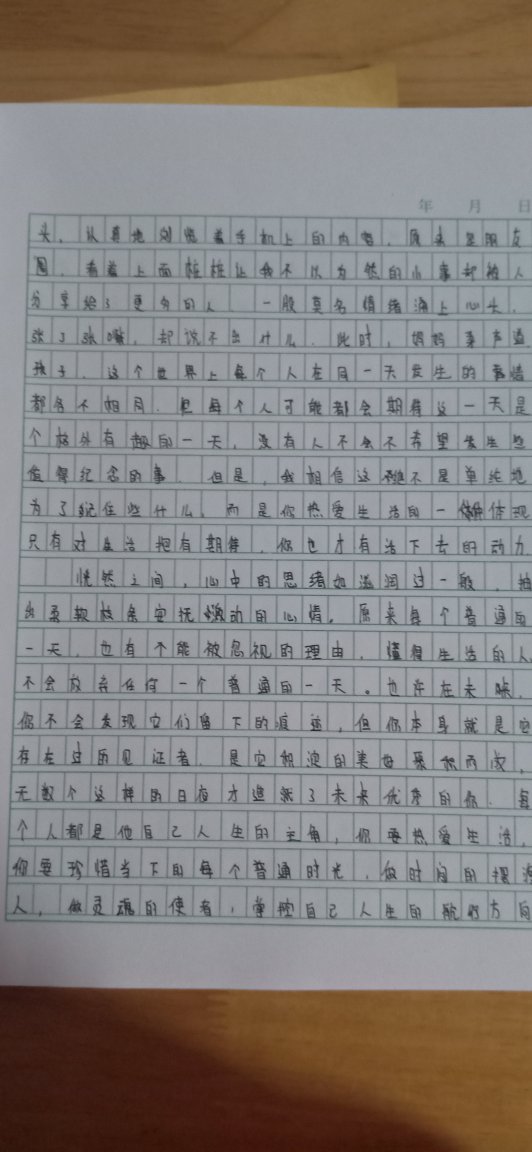 年 月 日
头，认真地浏览着手机上的内容，原来是朋友
圈，看着上面桩桩让我不以为然的小事却被人
分享给了更多的人，一股莫名情绪涌上心头，
张了张嘴，却说不出什么。此时，妈妈柔声道
孩子，这个世界上每个人在同一天发生的事情
都各不相同，但每个人可能都会期待这一天是
个格外有趣的一天，没有人不会不希望发生些
值得纪念的事，但是，我相信这不是单纯地
为了记住些什么，而是你热爱生活的一种体现
只有对生活抱有期待，你也才有活下去的动力
恍然之间，心中的思绪如滋润过一般，抽
出柔软枝条安抚激动的心情。原来每个普通的
一天，也有不能被忽视的理由，懂得生活的人
不会放弃任何一个普通的一天。也许在未来，
你不会发现它们留下的痕迹，但你本身就是它
存在过历见证者，是它积淀的美好累积而成，
无数个这样的日夜才造就了未来优秀的你。每
个人都是他自己人生的主角，你要热爱生活，
你要珍惜当下的每个普通时光，做时间的摆渡
人，做灵魂的使者，掌控自己人生的航行方向